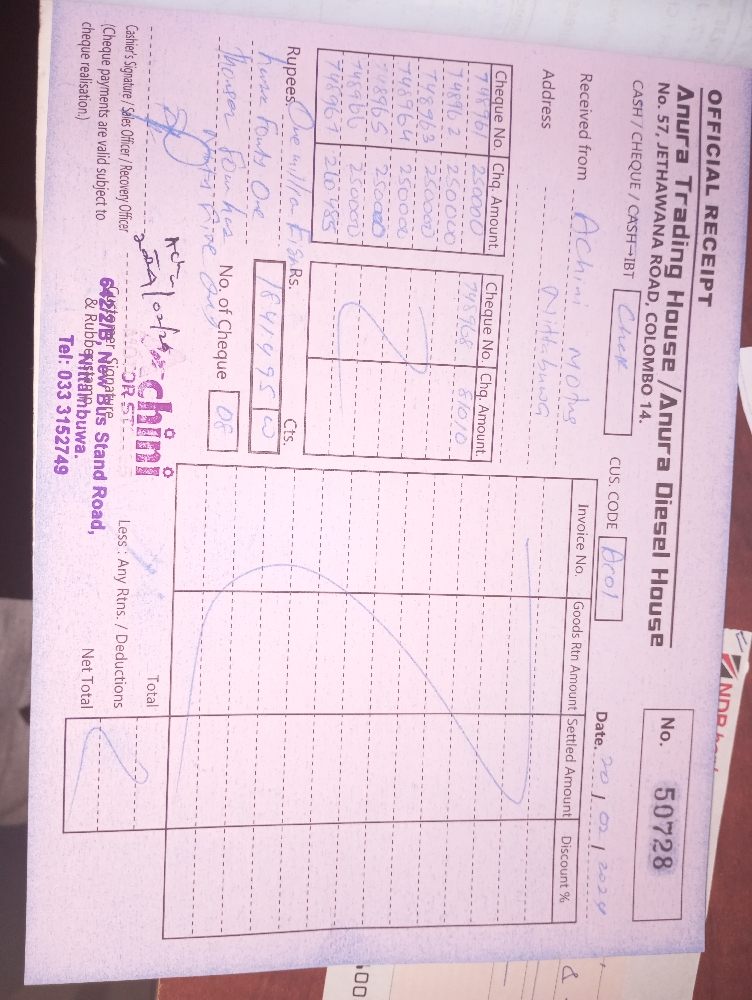 OFFICIAL RECEIPT
Anura Trading House /Anura Diesel House
No. 57, JETHAWANA ROAD, COLOMBO 14.
No. 50728
CASH / CHEQUE / CASH→IBT Chek
CUS. CODE
Date. 20 / 02 / 2024
Received from Achini
Address Nittabuwa
Cheque No. Chq. Amount.
748961 250000
748962 250000
748963 250000
748964 250000
748965 250000
748966 250000
748967 260485
Cheque No. Chq. Amount.
748968 81010
Invoice No. Goods Rtn Amount Settled Amount Discount %
Rupees One million Eight
Rs. 1841495 Cts.
No. of Cheque 08
Cashier's Signature / Sales Officer / Recovery Officer
(Cheque payments are valid subject to
cheque realisation.)
Customer Signature
& Rubber
chini
642/2/B, New Bus Stand Road,
Nittambuwa.
Tel: 033 3152749
Total
Less : Any Rtns. / Deductions
Net Total